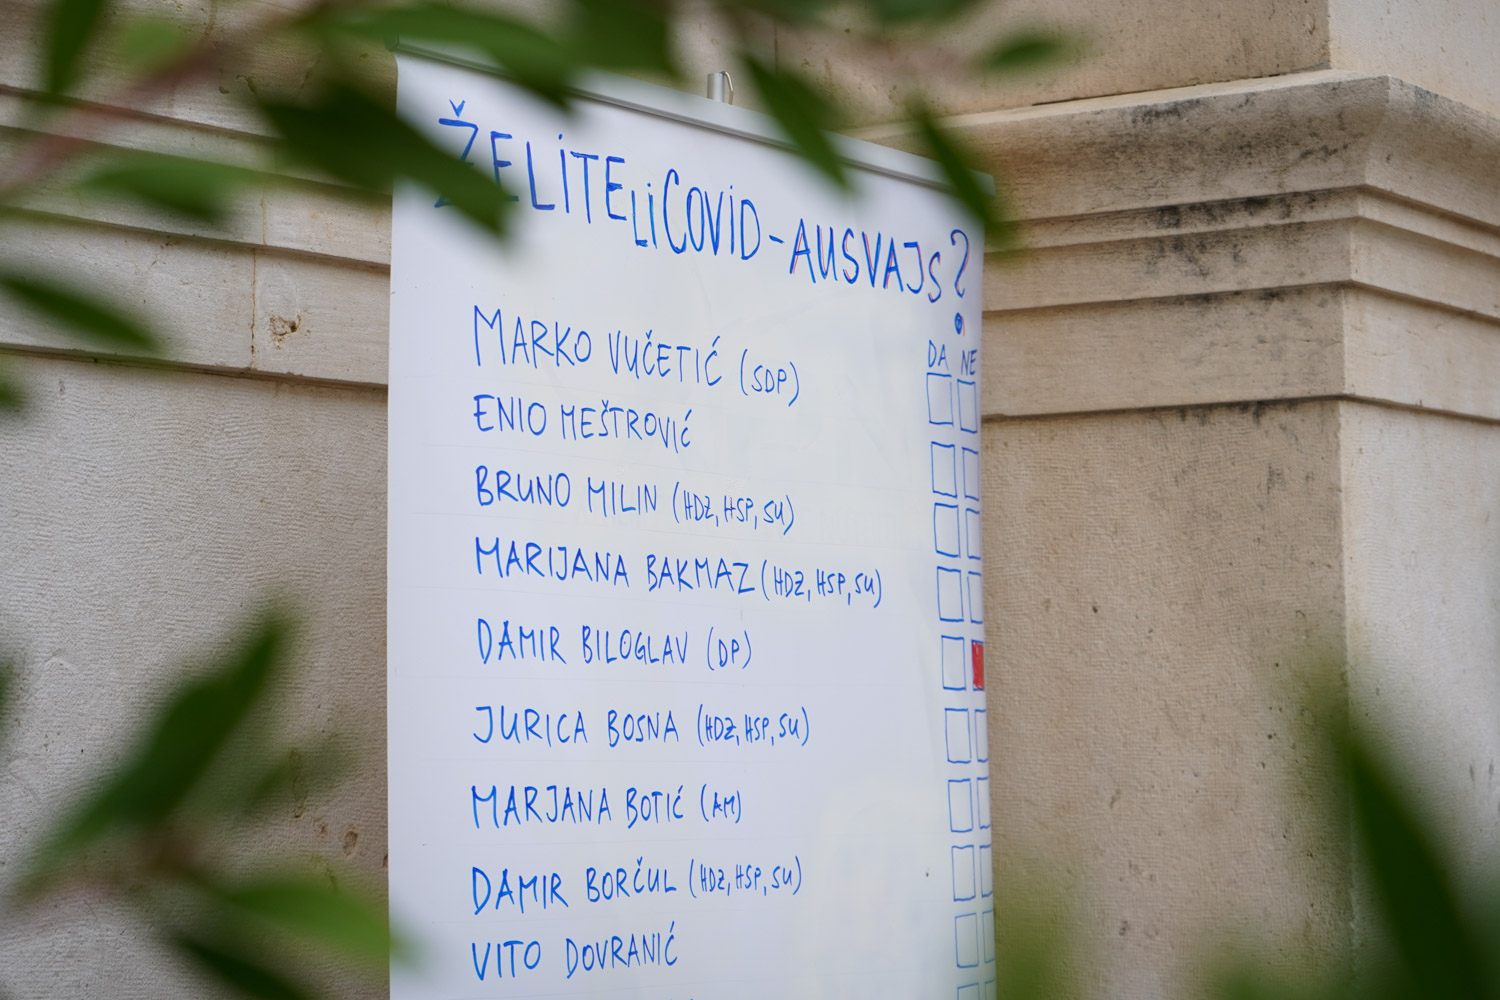 ŽELITE LI COVID-AUSVAJS?
DA NE
MARKO VUČETIĆ (SDP)
ENIO MEŠTROVIĆ
BRUNO MILIN (HDZ, HSP, SU)
MARIJANA BAKMAZ (HDZ, HSP, SU)
DAMIR BILOGLAV (DP)
JURICA BOSNA (HDZ, HSP, SU)
MARJANA BOTIĆ (AM)
DAMIR BORČUL (HDZ, HSP, SU)
VITO DOVRANIĆ